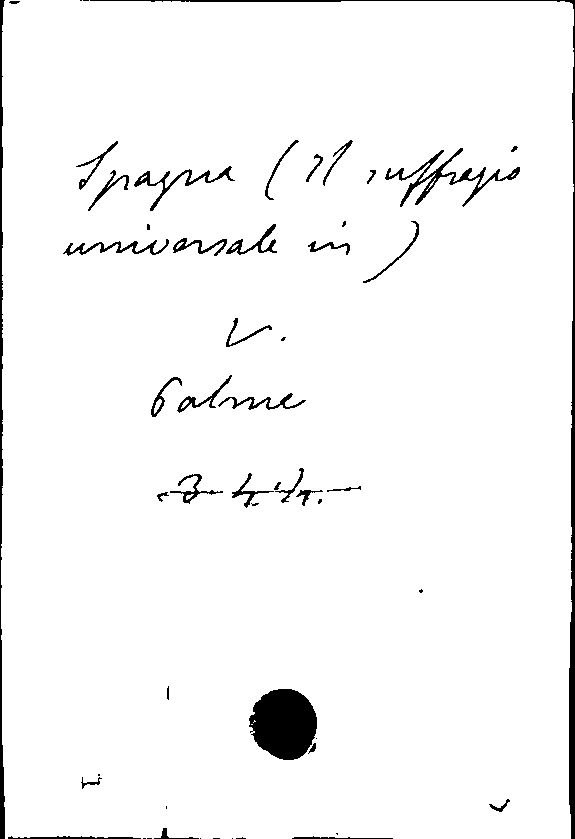 Spagna (Il suffragio
universale in)
V.
Palme